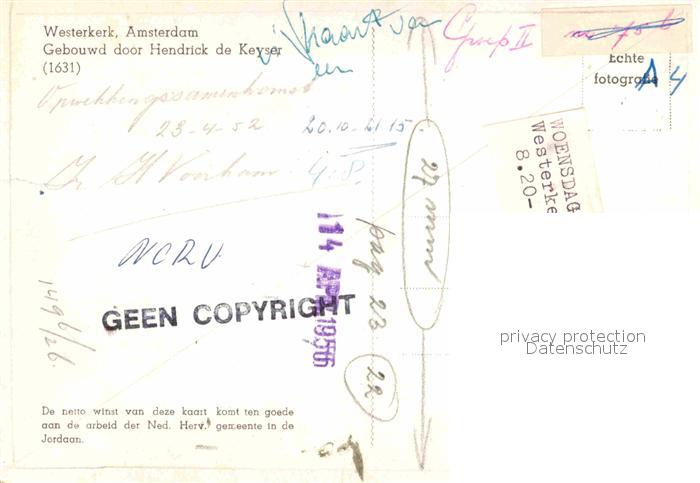 Westerkerk, Amsterdam
Gebouwd door Hendrick de Keyser
(1631)
kaart van
een
Groep II
Echte
fotografie
A 4
Opwekkingssamenkomst
23-4-52 20.10-21.15.
WOENSDAG
Westerke
8.20-
27 mm
pag 23
22
NCRV
14 APR. 1956
GEEN COPYRIGHT
1496/26.
privacy protection
Datenschutz
De netto winst van deze kaart komt ten goede
aan de arbeid der Ned. Herv. gemeente in de
Jordaan.